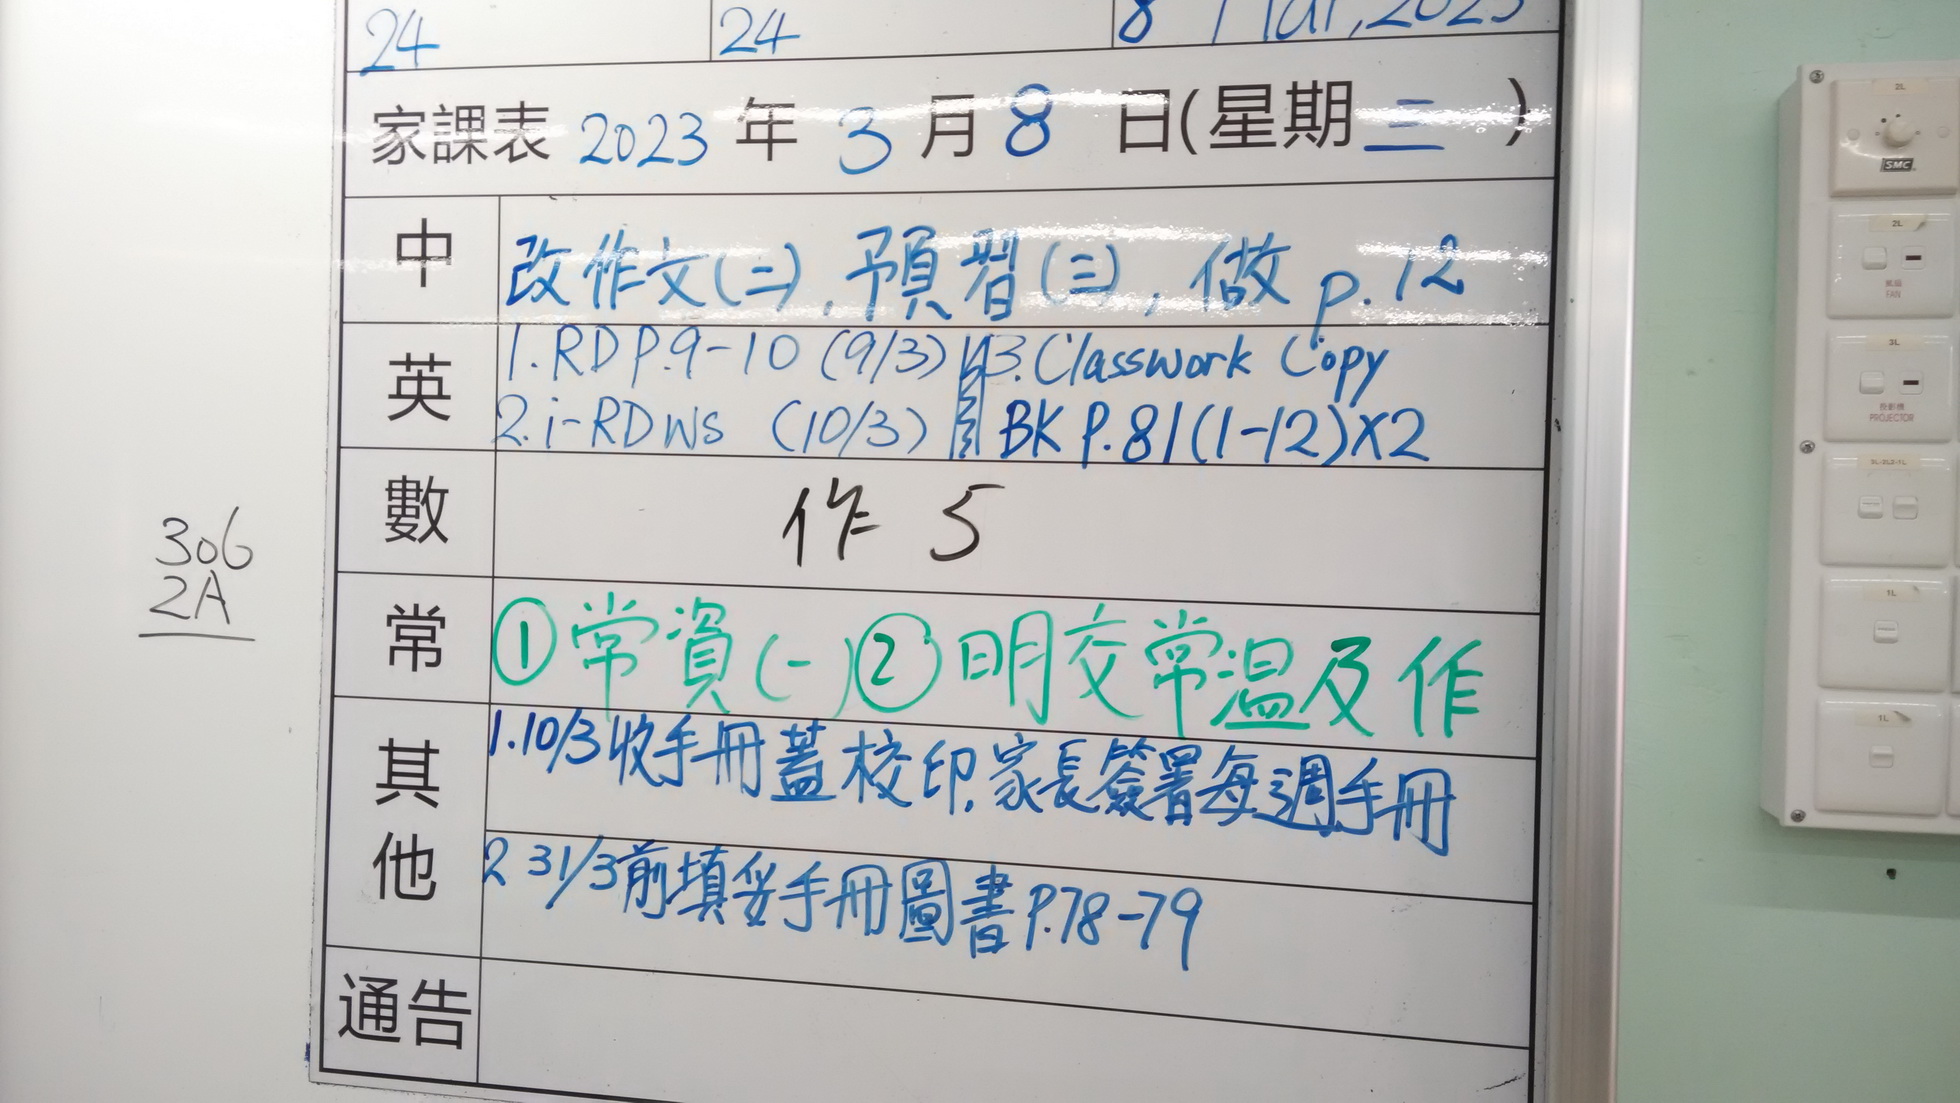 24 24 8 Mar, 2023
家課表 2023 年 3 月 8 日(星期三)
中 改作文(二), 預習(三), 做 p.12
英 1. RD P.9-10 (9/3) 3. Classwork Copy
2. i-RD WS (10/3) BK P.81(1-12)X2
數 作 5
306
2A
常 ①常資(一)②明交常溫及作
其他 1. 10/3收手冊蓋校印,家長簽署每週手冊
2 31/3前填妥手冊圖書P.78-79
通告
2L
SMC
2L
風扇
FAN
3L
投影機
PROJECTOR
1L
1L